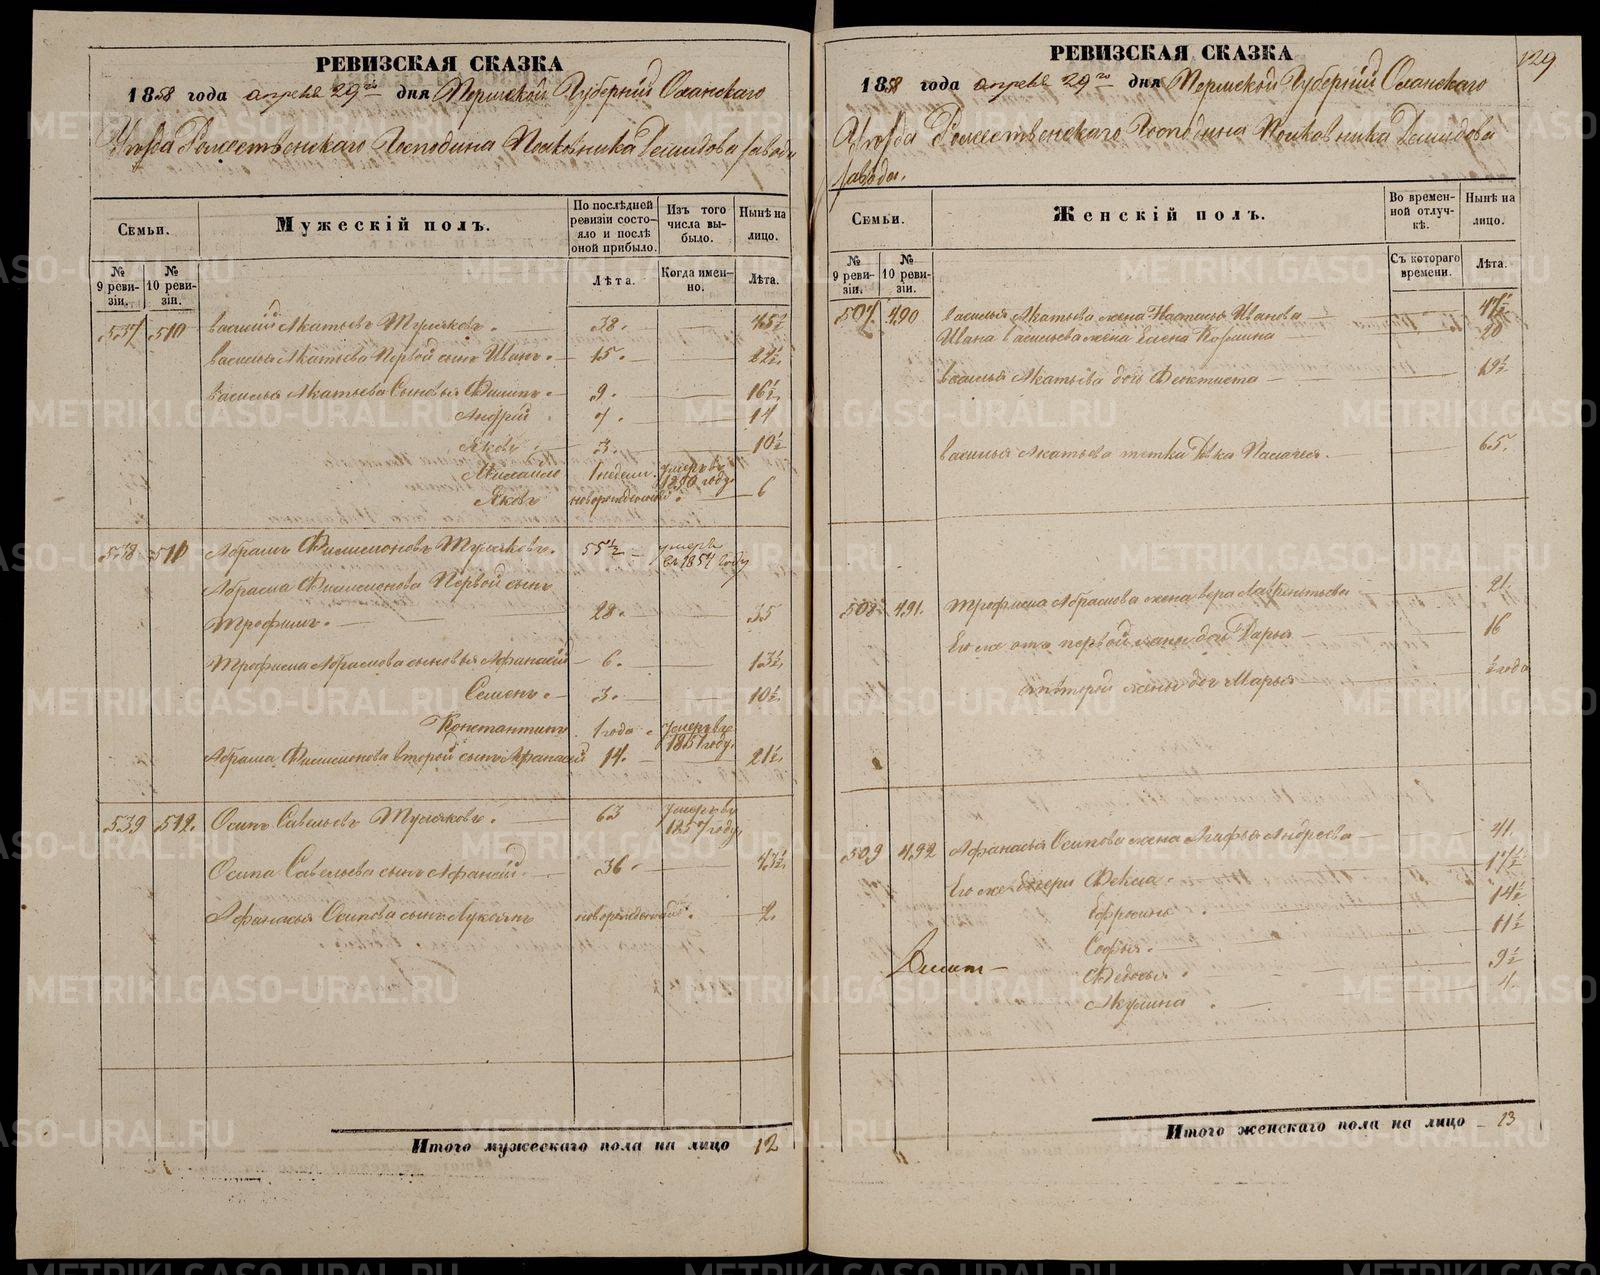 РЕВИЗСКАЯ СКАЗКА
1858 года апреля 29го дня Пермской Губернiи Оханскаго
Уезда Рожественскаго Господина Полковника Демидова завода
Семьи.
Мужескiй полъ.
По последней ревизiи состояло и после оной прибыло.
Изъ того числа выбыло.
Ныне на лицо.
№ 9 ревизiи.
№ 10 ревизiи.
Лета.
Когда именно.
Лета.
537 510 Василий Акатьевъ Туляковъ. 38. 45½
Василья Акатьева Первой сынъ Иванъ. 15. 22½
Василья Акатьева Сыновья Филипъ. 9. 16½
Андрей 7. 14
Яковъ 3. 10½
Михайло 1 недели умеръ въ 1850 году
Яковъ новорожденный. 6
538 511 Абрамъ Филимоновъ Туляковъ. 55½ умеръ въ 1854 году
Абрама Филимонова Первой сынъ
Трофимъ. 28. 35
Трофима Абрамова сыновья Афанасiй 6. 13½
Семенъ. 3. 10½
Константинъ 1 года умеръ въ 1851 году
Абрама Филимонова второй сынъ Афанасiй 14. 21½
539 512. Осипъ Савельевъ Туляковъ. 63 умеръ въ 1857 году
Осипа Савельева сынъ Афанасiй. 36. 43½
Афанасья Осипова сынъ Лукоянъ новорожденный. 2.
Итого мужескаго пола на лицо 12
129
РЕВИЗСКАЯ СКАЗКА
1858 года апреля 29го дня Пермской Губернiи Оханскаго
Уезда Рожественскаго Господина Полковника Демидова
завода.
Семьи.
Женскiй полъ.
Во временной отлучке.
Ныне на лицо.
№ 9 ревизiи.
№ 10 ревизiи.
Съ котораго времени.
Лета.
507 490 Василья Акатьева жена Настасья Иванова 47½
Ивана Васильева жена Елена 20
Василья Акатьева дочь Феоктиста 19½
Василья Акатьева тетка Девка Пелагея. 65.
508 491. Трофима Абрамова жена Вера Лаврентьева 21.
Его же отъ первой жены дочь Дарья 16
от второй жены дочь Марья ½ года
509 492 Афанасья Осипова жена Агафья Андреева 41.
Его же дочери Фекла. 17½
Ефросинья 14½
Софья. 11½
Федосья. 9½
Акулина 4.
Итого женскаго пола на лицо 13
METRIKI.GASO-URAL.RU